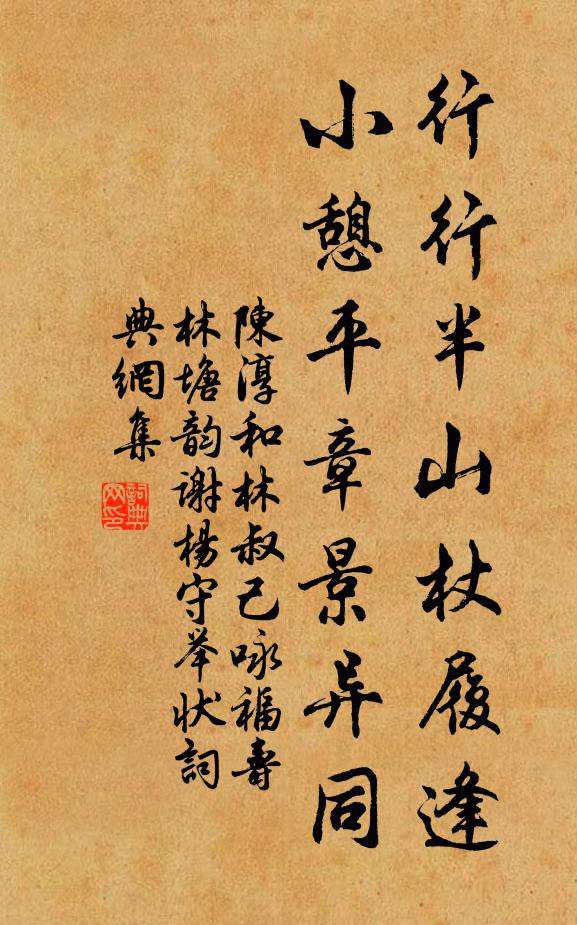 行行半山杖履逢
小憩平章景异同
陳淳和林叔己咏福壽
林塘韵谢楊守举状詞
典網集
詞典网印